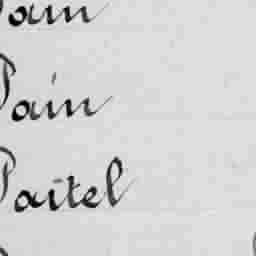 Pain
Pain
Paitel